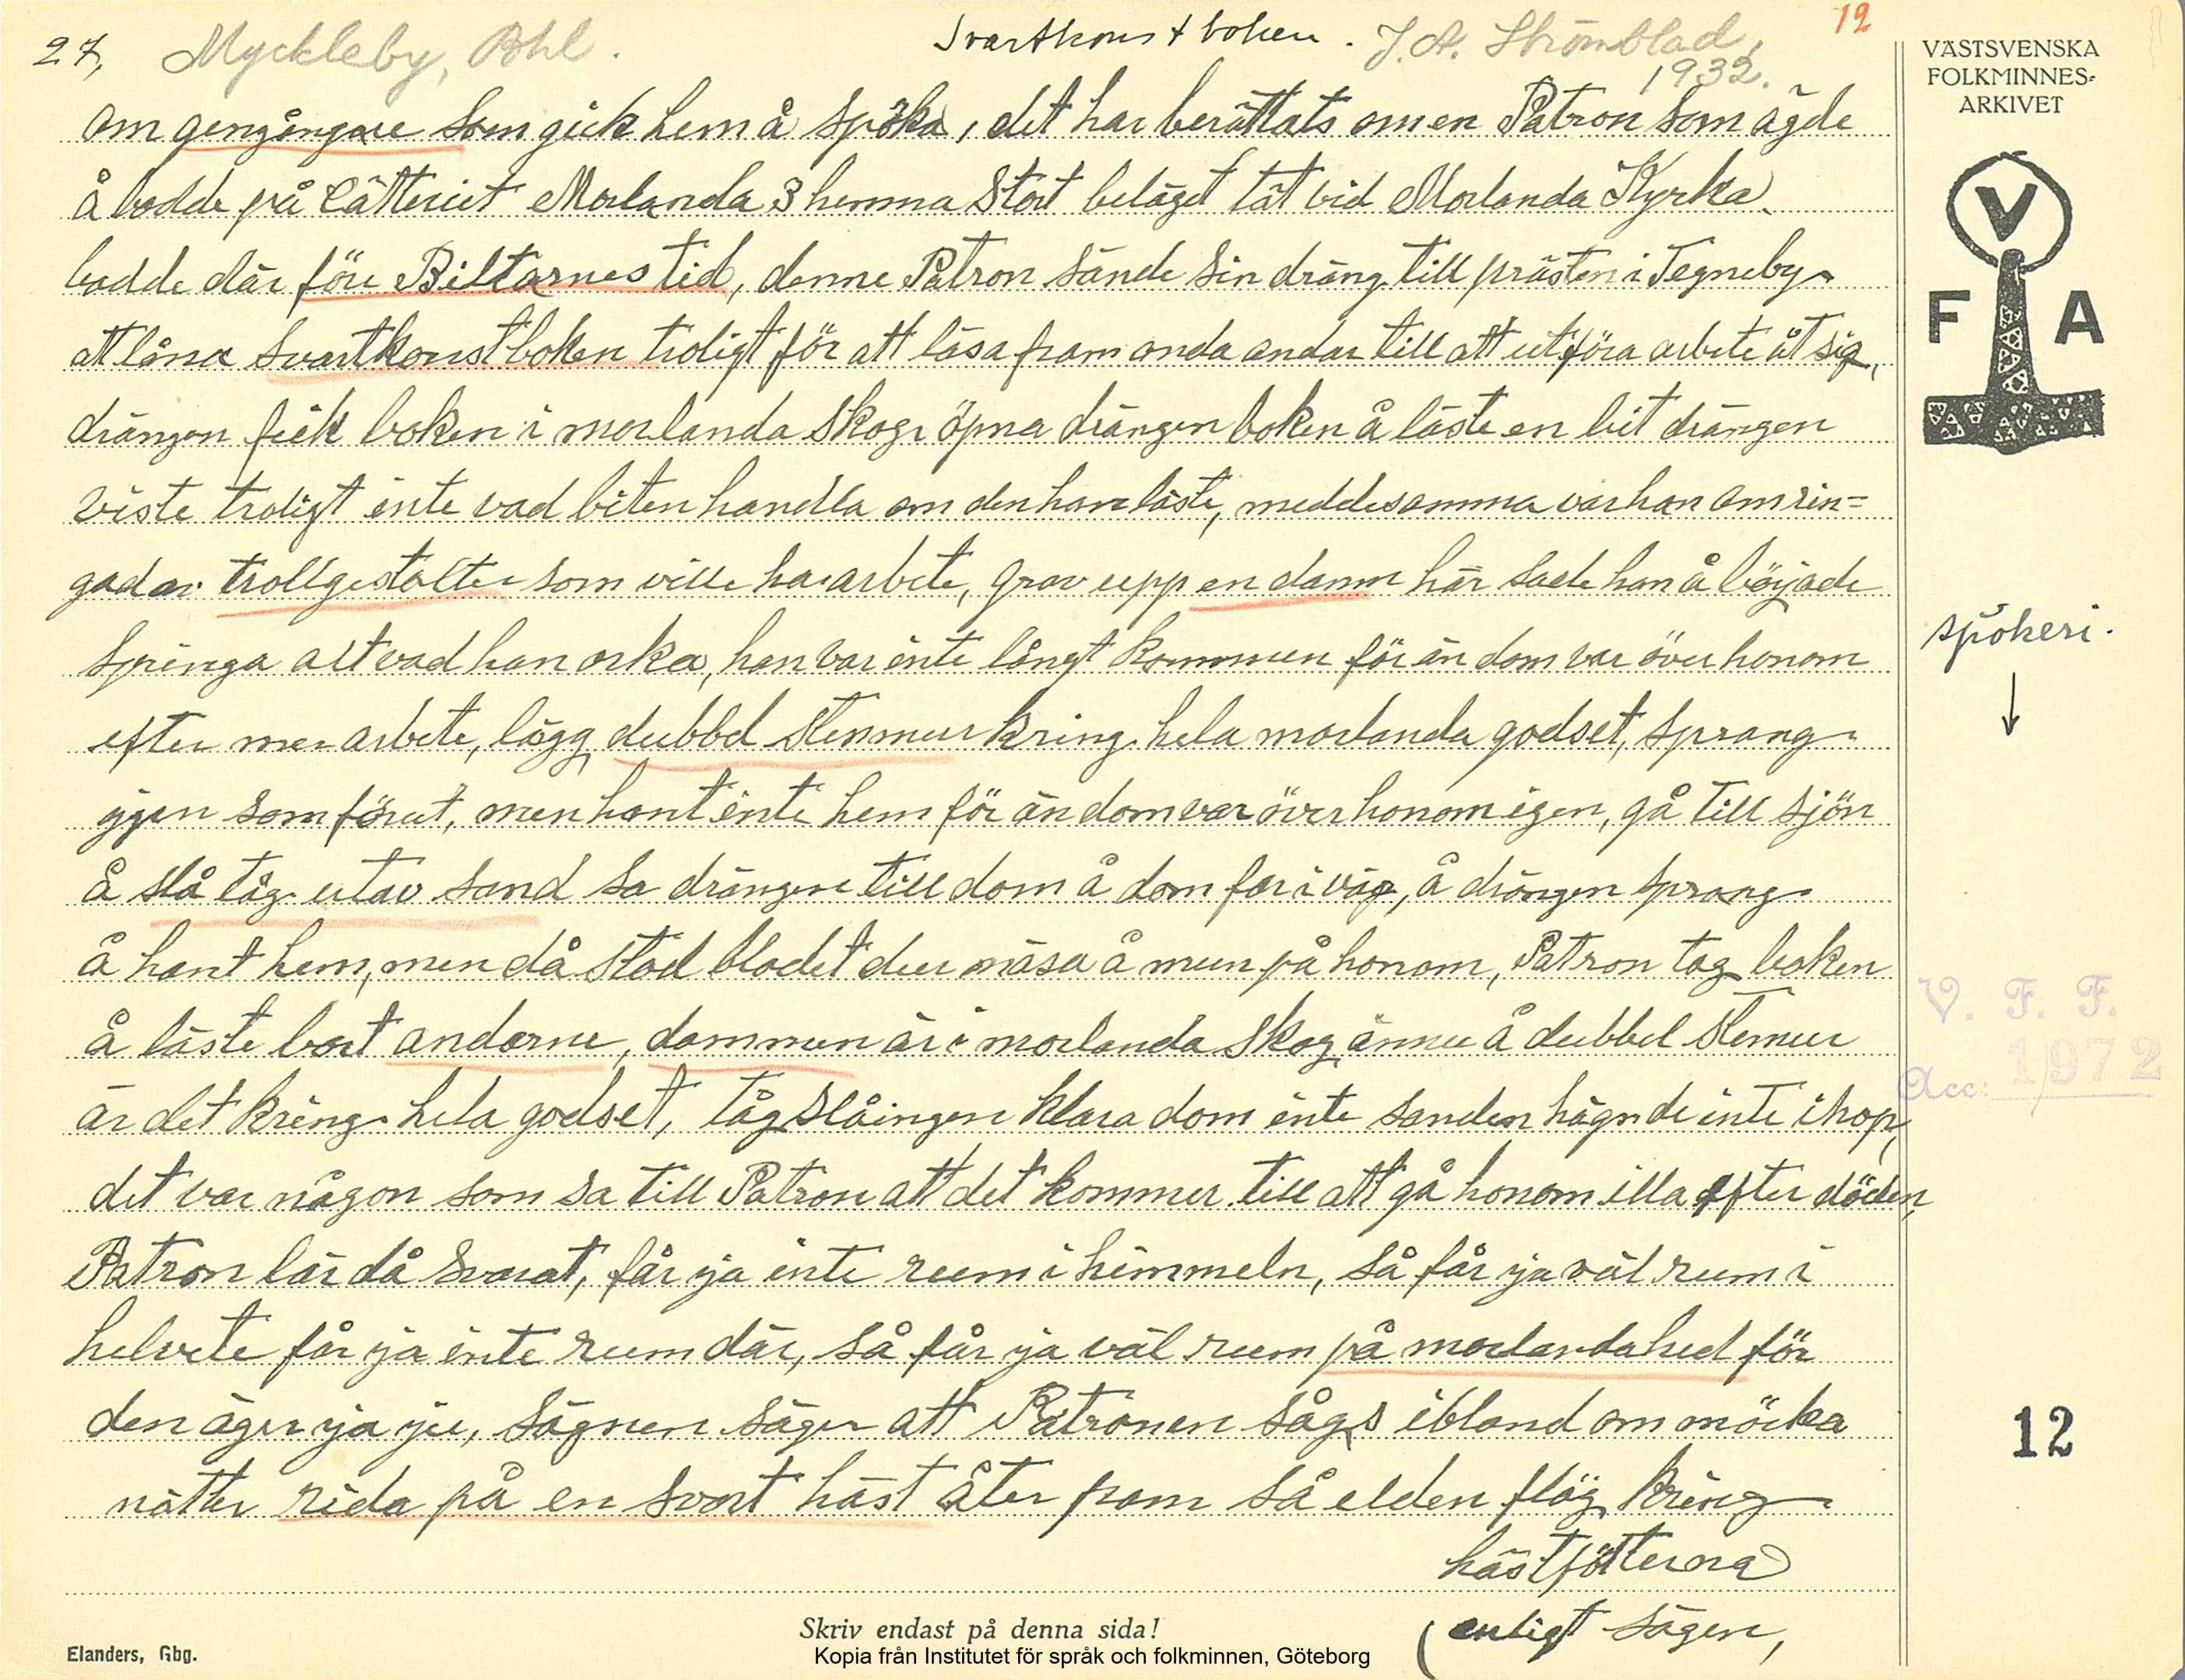 27, Myckleby, Bohl. Svartkonstboken. J. A. Strömblad, 12
1932.
VÄSTSVENSKA
FOLKMINNES-
ARKIVET
om gengångare som gick hem å spöka, det har berättats om en Patron som ägde
å bodde på Sätteriet Morlanda 3 hemma Stort beläget tät vid Morlanda Kyrka
bodde där före Biltarnes tid, denne Patron sände sin dräng till prästen i Tegneby
att låna svartkonstboken troligt för att läsa fram onda andar till att utföra arbete åt sig,
V
F A
drängen fick boken i morlanda Skog öpna drängen boken å läste en bit drängen
viste troligt inte vad biten handla om den han läste, meddesamma var han omrin=
gad av trollgestalter som ville ha arbete, grav upp en damm här sade han å började
springa alt vad han orka, han var inte långt kommen för än dom var över honom
spökeri.
efter mer arbete, lägg dubbel stenmur kring hela morlanda godset, sprang
igen som förut, men hant inte hem för än dom var över honom igen, gå till sjön
å slå tåg utav sand sa drängen till dom å dom for i väg, å drängen sprang
å hant hem, men då stod blodet dur näsa å mun på honom, Patron tog boken
å läste bort andarne, dammen är i morlanda skog ännu å dubbel stenmur
V. F. F.
Acc: 1972
är det kring hela godset, tågslåingen klara dom inte sanden hägnde inte ihop,
det var någon som sa till Patron att det kommer till att gå honom illa efter döden,
Patron lär då svarat, får ja inte rum i himmeln, så får ja väl rum i
helvete får ja inte rum där, så får ja väl rum på morlandahed för
den äger ja ju, sägnen säger att Patronen sågs ibland om mörka
12
nätter rida på en svart häst åter fram så elden flög kring
hästfötterna
(enligt sägen,
Skriv endast på denna sida!
Elanders, Gbg.
Kopia från Institutet för språk och folkminnen, Göteborg